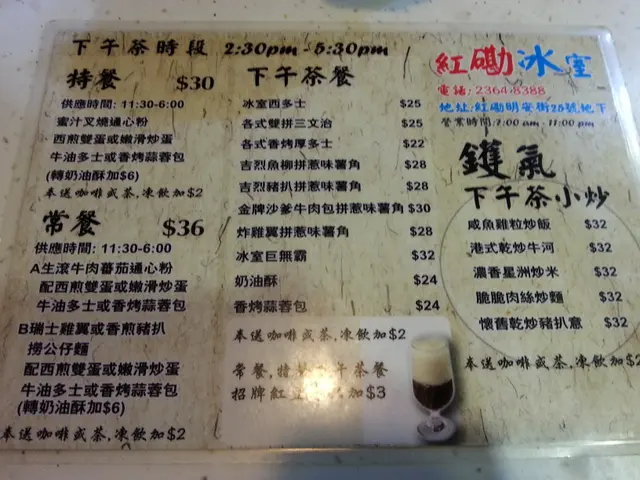 下午茶時段 2:30pm - 5:30pm
特餐 $30
供應時間: 11:30-6:00
蜜汁叉燒通心粉
西煎雙蛋或嫩滑炒蛋
牛油多士或香烤蒜蓉包
(轉奶油酥加$6)
奉送咖啡或茶,凍飲加$2
常餐 $36
供應時間: 11:30-6:00
A生滾牛肉蕃茄通心粉
配西煎雙蛋或嫩滑炒蛋
牛油多士或香烤蒜蓉包
B瑞士雞翼或香煎豬扒
撈公仔麵
配西煎雙蛋或嫩滑炒蛋
牛油多士或香烤蒜蓉包
(轉奶油酥加$6)
奉送咖啡或茶,凍飲加$2
下午茶餐
冰室西多士 $25
各式雙拼三文治 $25
各式香烤厚多士 $22
吉烈魚柳拼惹味薯角 $28
吉烈豬扒拼惹味薯角 $28
金牌沙爹牛肉包拼惹味薯角 $30
炸雞翼拼惹味薯角 $28
冰室巨無霸 $32
奶油酥 $24
香烤蒜蓉包 $24
奉送咖啡或茶,凍飲加$2
常餐,特 午茶餐
招牌紅豆 加$3
紅磡冰室
電話: 2364 8388
地址:紅磡明安街25號地下
營業時間:7:00 am - 11:00 pm
鑊氣
下午茶小炒
咸魚雞粒炒飯 $32
港式乾炒牛河 $32
濃香星洲炒米 $32
脆脆肉絲炒麵 $32
懷舊乾炒豬扒意 $32
奉送咖啡或茶,凍飲加$2